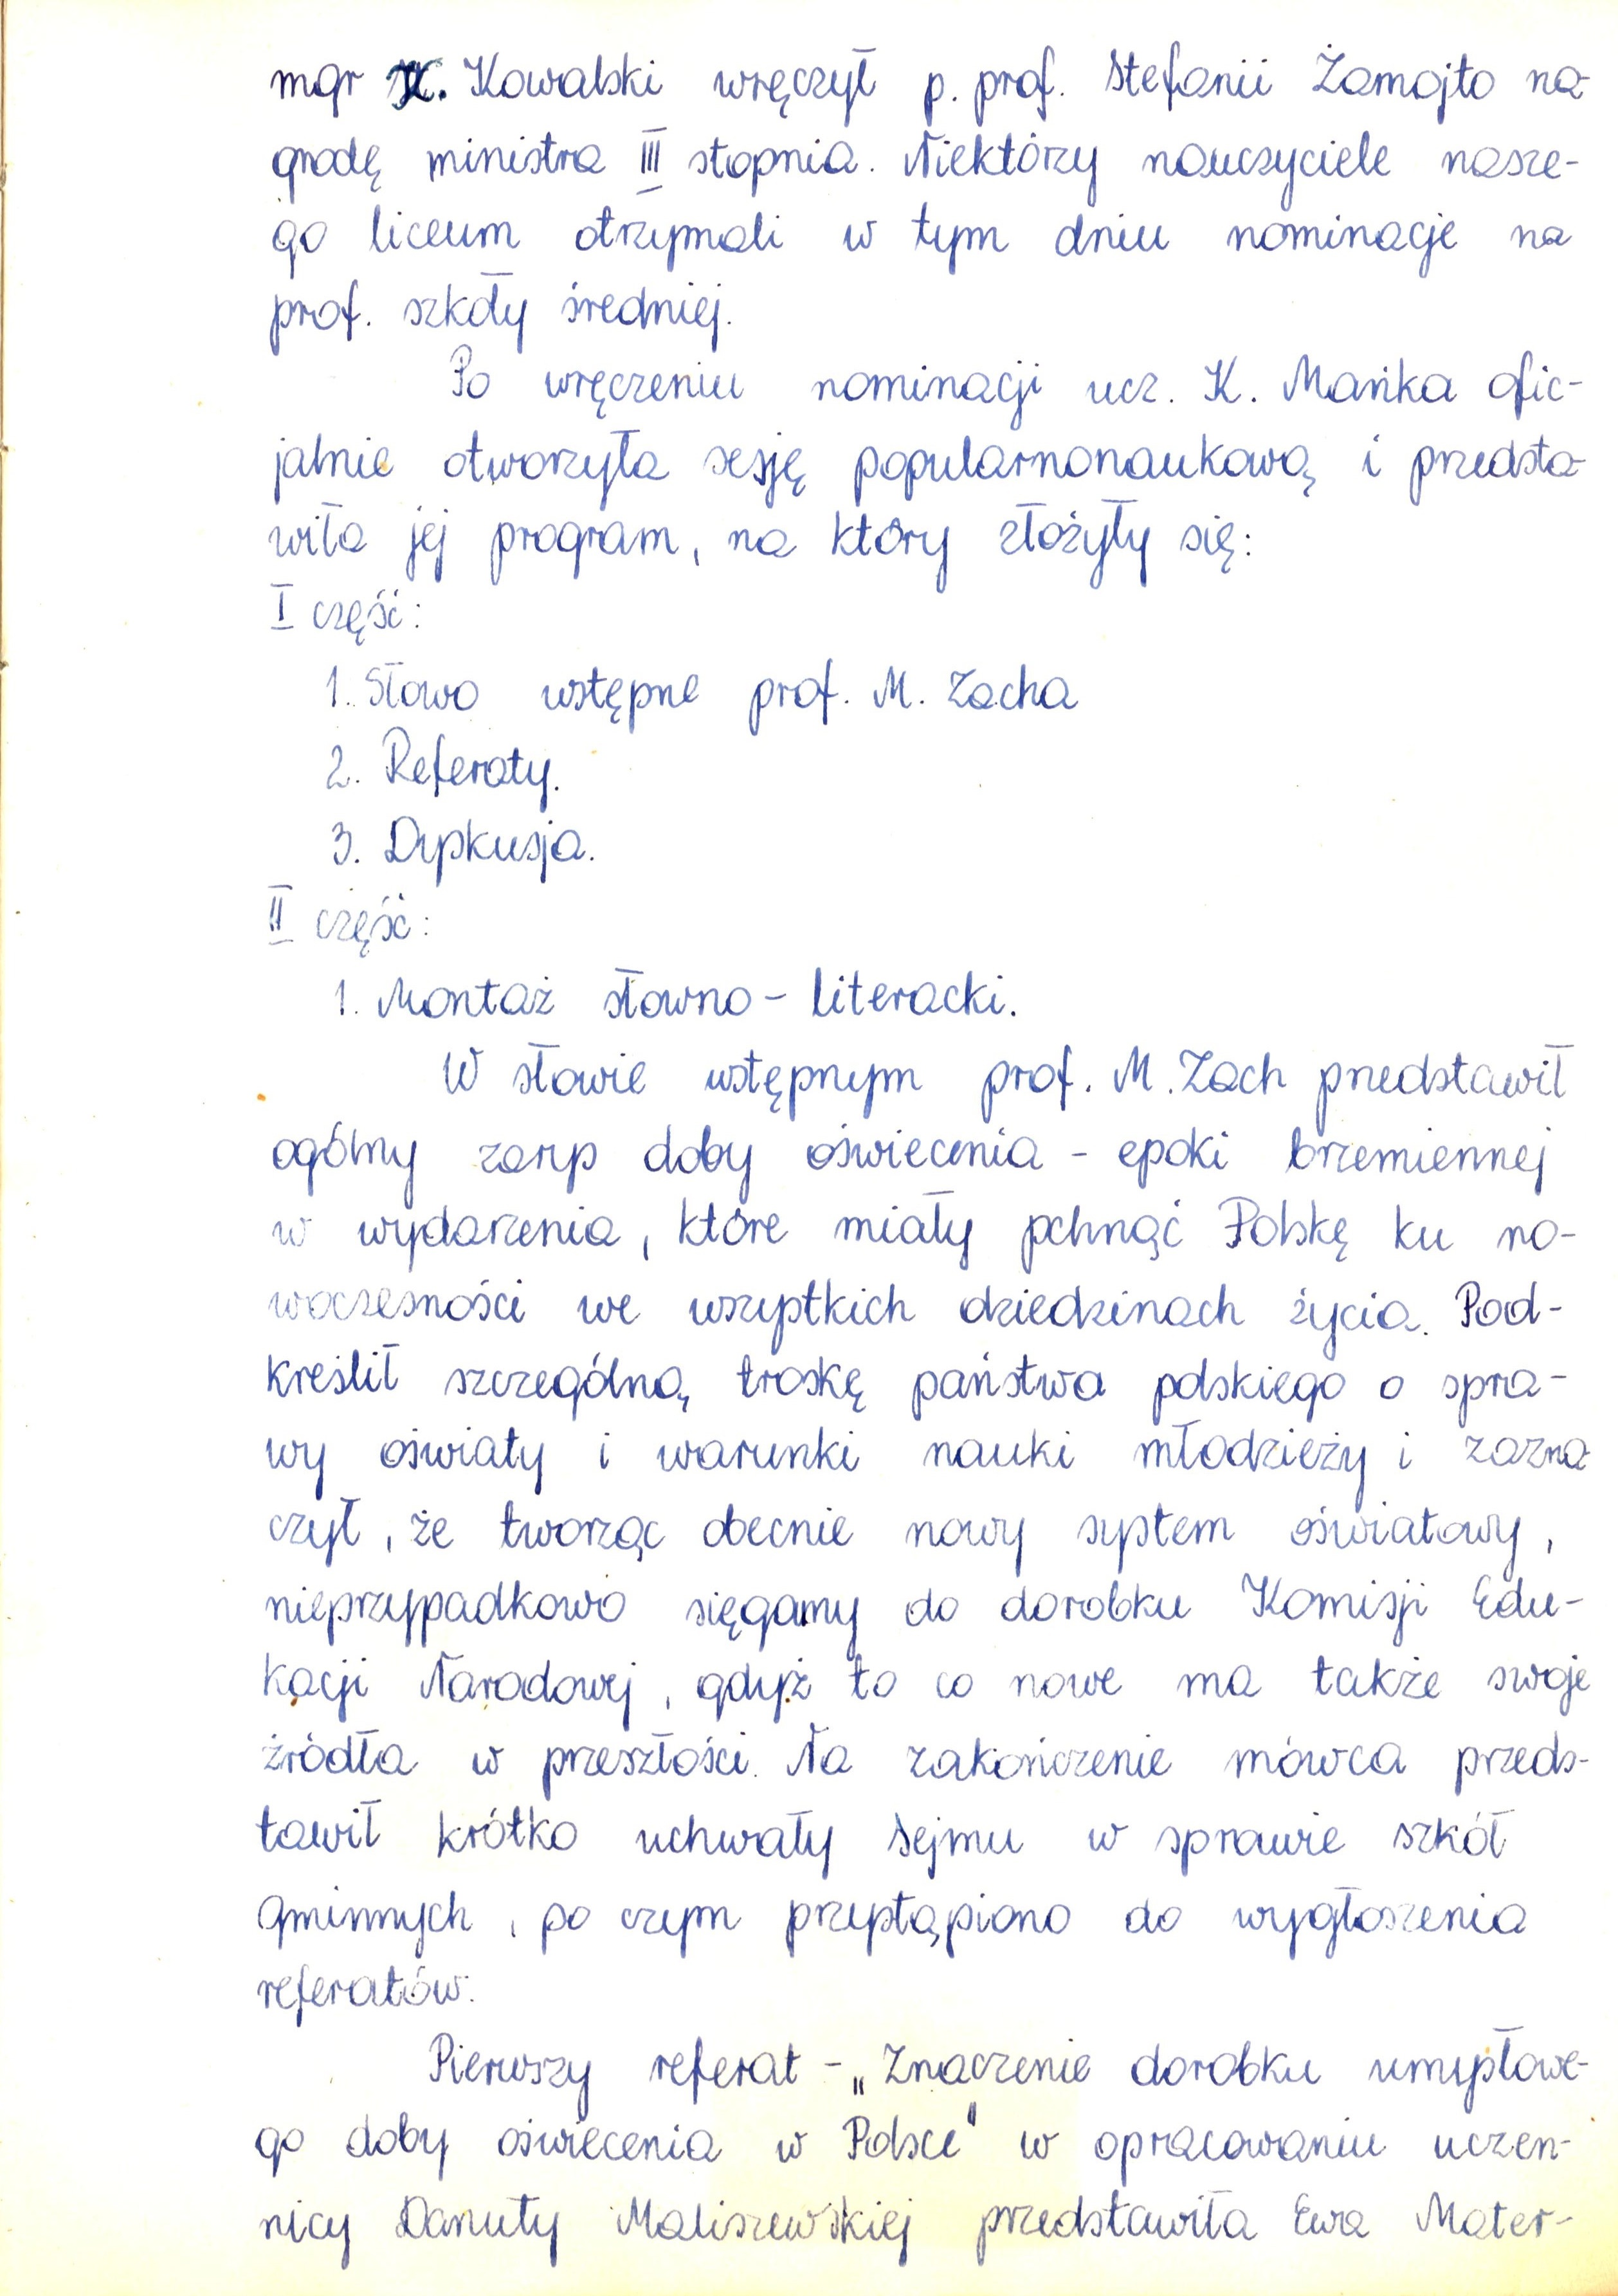 mgr K. Kowalski wręczył p. prof. Stefanii Żamojto na-
grodę ministra III stopnia. Niektórzy nauczyciele nasze-
go liceum otrzymali w tym dniu nominacje na
prof. szkoły średniej.
Po wręczeniu nominacji ucz. K. Mańka ofic-
jalnie otworzyła sesję popularnonaukową i przedsta-
wiła jej program, na który złożyły się:
I część:
1. Słowo wstępne prof. M. Zacha
2. Referaty.
3. Dyskusja.
II część:
1. Montaż słowno - literacki.
W słowie wstępnym prof. M. Zach przedstawił
ogólny zarys doby oświecenia - epoki brzemiennej
w wydarzenia, które miały pchnąć Polskę ku no-
woczesności we wszystkich dziedzinach życia. Pod-
kreślił szczególną troskę państwa polskiego o spra-
wy oświaty i warunki nauki młodzieży i zazna-
czył, że tworząc obecnie nowy system oświatowy,
nieprzypadkowo sięgamy do dorobku Komisji Edu-
kacji Narodowej, gdyż to co nowe ma także swoje
źródła w przeszłości. Na zakończenie mówca przeds-
tawił krótko uchwały Sejmu w sprawie szkół
gminnych, po czym przystąpiono do wygłoszenia
referatów.
Pierwszy referat - „Znaczenie dorobku umysłowe-
go doby oświecenia w Polsce" w opracowaniu uczen-
nicy Danuty Maliszewskiej przedstawiła Ewa Mater-